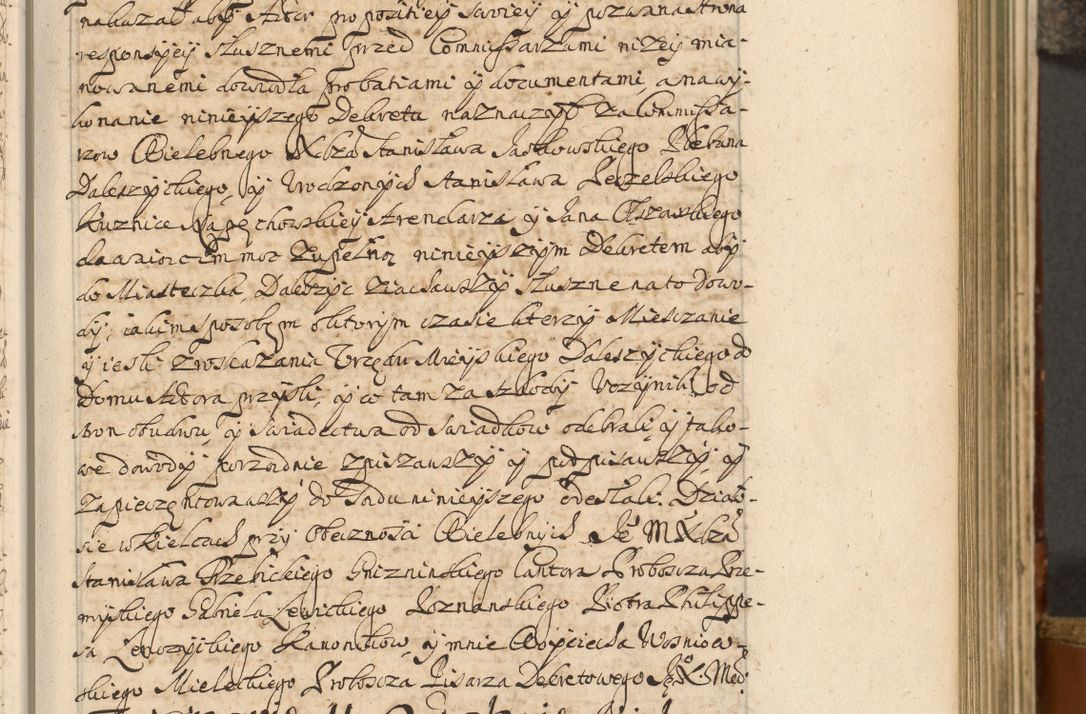 nakazał aby Aktor propositiey swoiey y pozwana strona
responsyey słusznemi przed Commissarzami nizey mia-
nowanemi dowiodła probatiami y documentami, a na wy-
konanie ninieyszego Dekretu naznaczyć za Commissa-
rzow Wielebnego Xdza Stanisława Plebana
Daleszyckiego, y Urodzonych Stanisława
Kuznice Arendarza y Jana
daiąc im moc zupełną ninieyszym Dekretem aby
do Miasteczka Daleszyc ziachawszy słuszne na to dowo-
dy, iakim sposobem oktorym czasie ktorzy Miesczanie
y iesli z roskazania Urzędu Mieyskiego Daleszyckiego do
Domu Aktora przyśli, y co tam za szkody uczynili, od
stron obudwu, y swiadectwa od swiadkow odebrali, y tako-
we dowody porządnie zpisawszy y podpisawszy, y
zapieczętowawszy do Sądu ninieyszego odesłali. Działo
sie w Kielcach przy obecznosci Wielebnych Je° M Xdza
Stanisława Rzebickiego Gnizninskiego Cantora Probosca Prze-
myskiego Gabriela Lewickiego Poznanskiego Piotra Philippe-
sa Lenczyckiego Kanonikow, y mnie Woyciecha Wosniow-
skiego Mieleckiego Probosca Pisarza Dekretowego